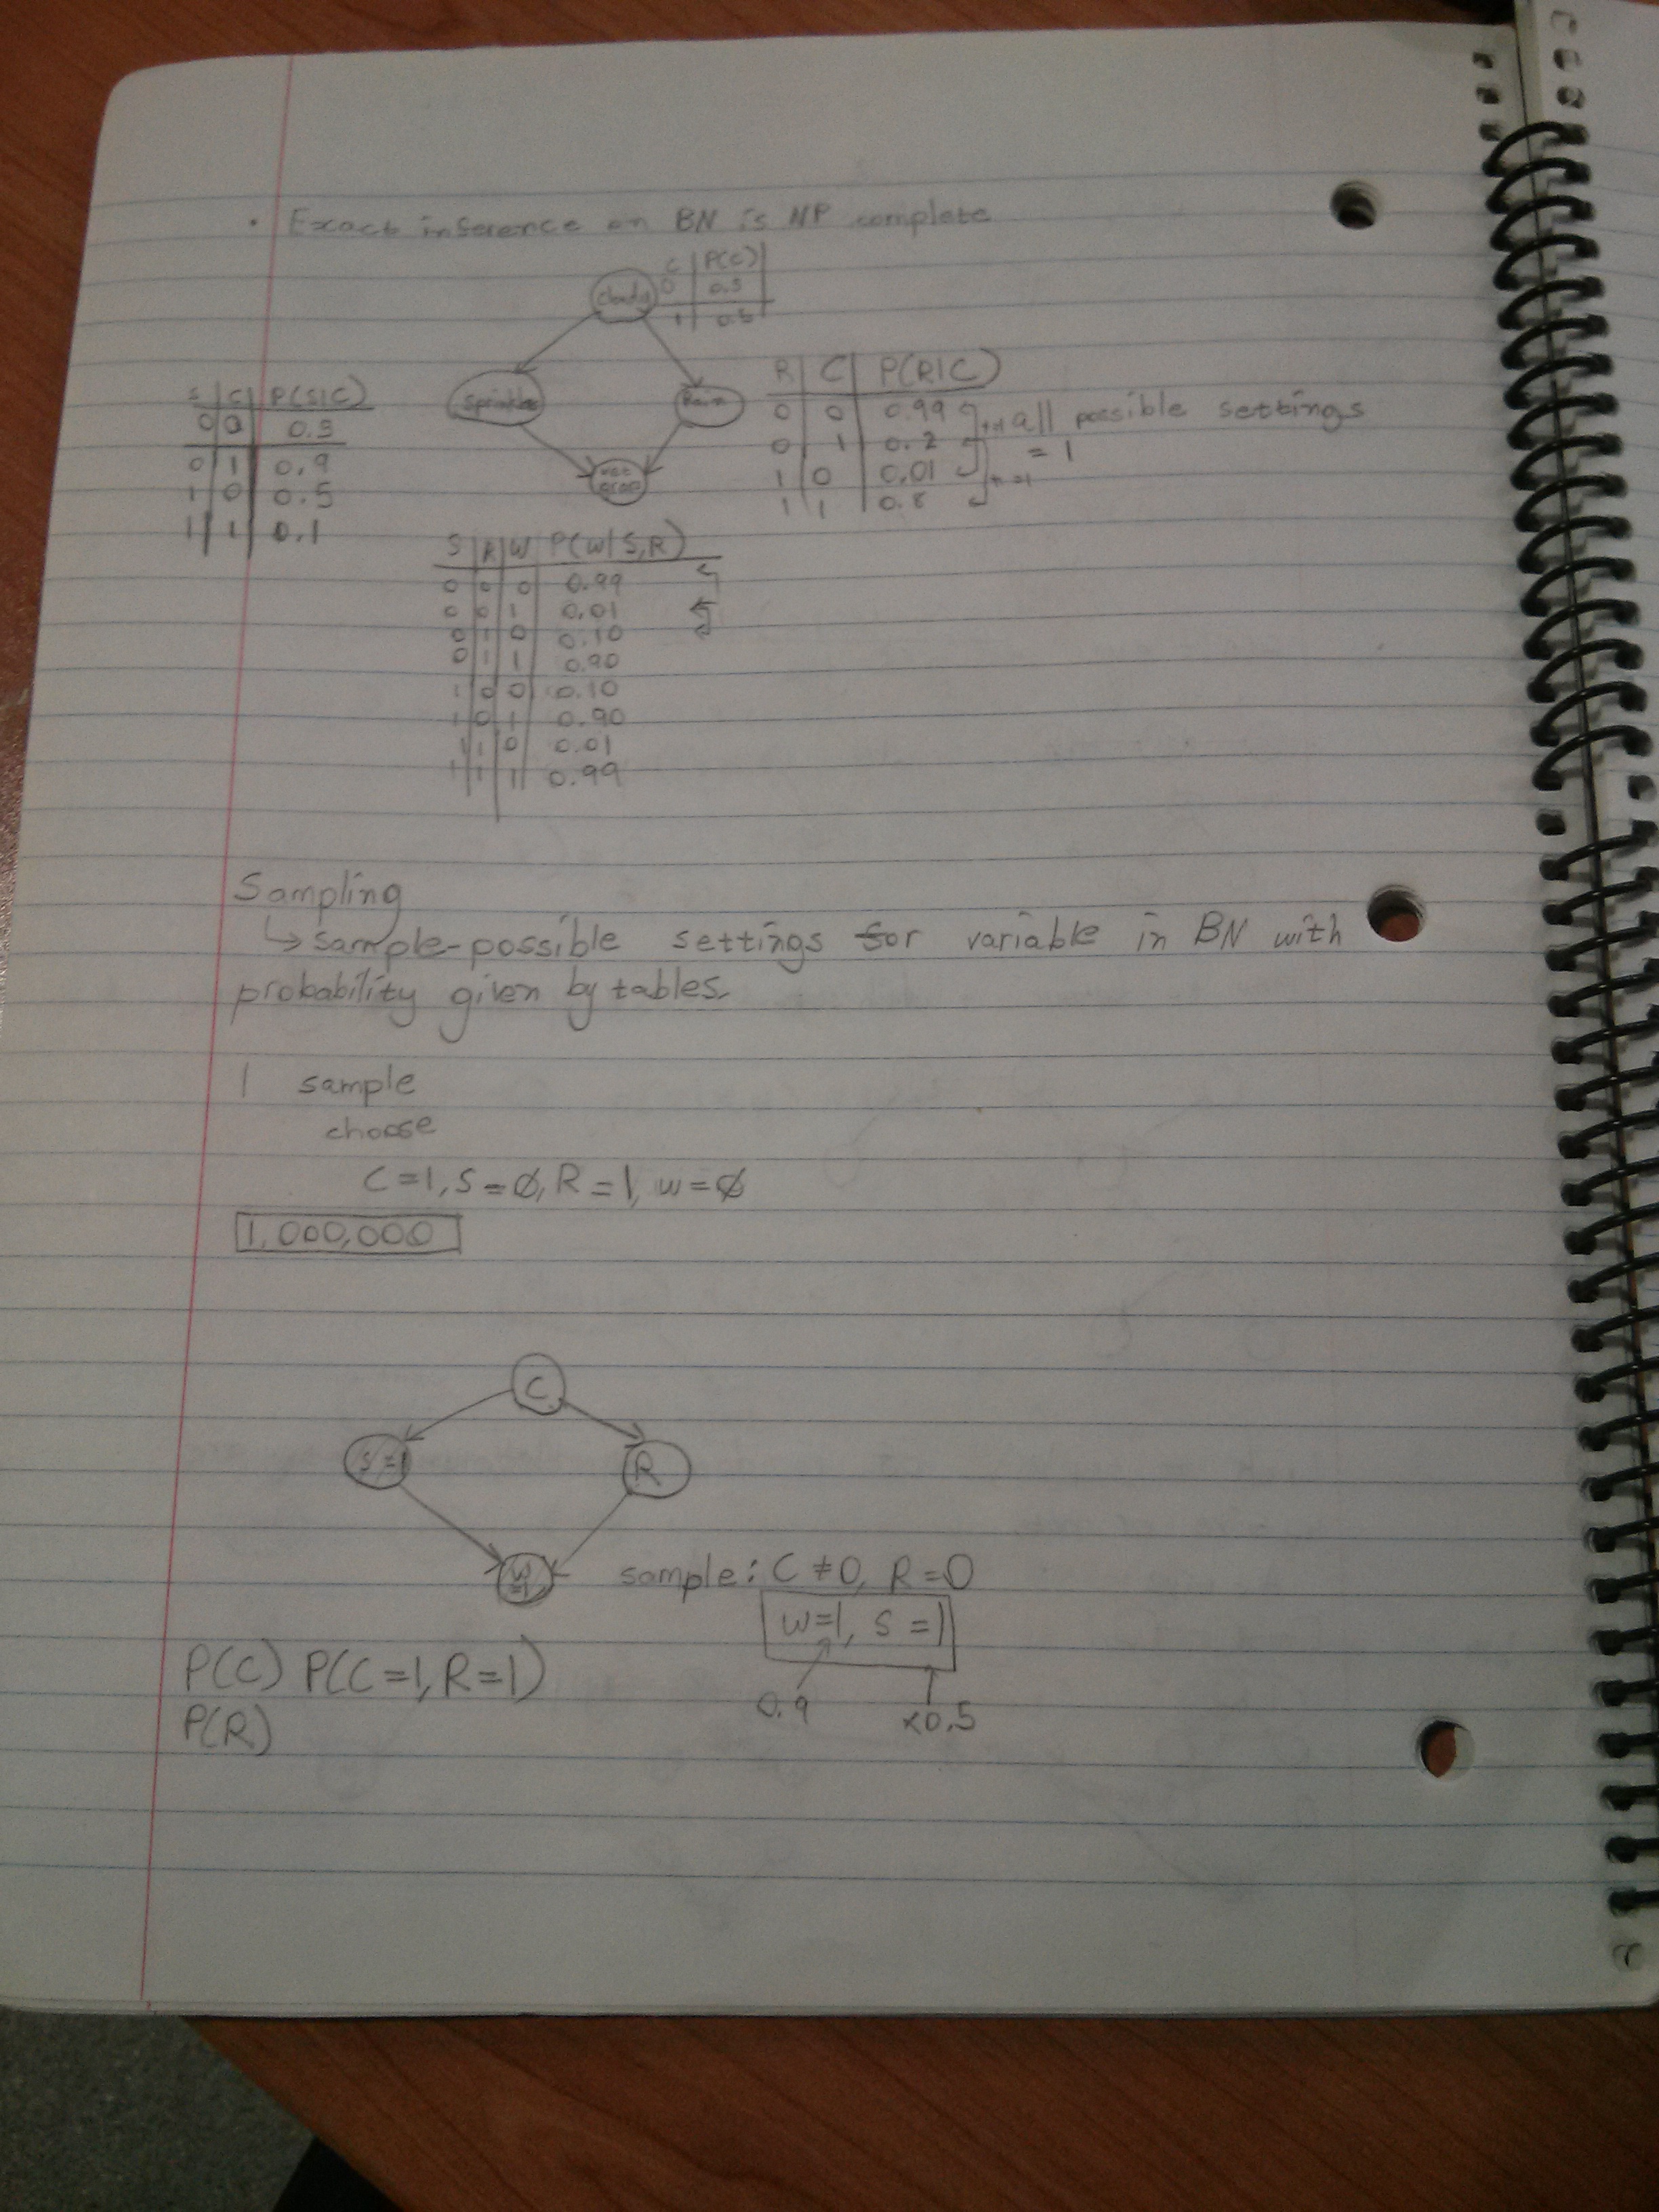 · Exact inference on BN is NP complete
C | P(C)
0 | 0.5
1 | 0.5
Cloudy
Sprinkler
Rain
wet
S | C | P(S|C)
0 0 0.5
0 1 0.9
1 0 0.5
1 1 0.1
R | C | P(R|C)
0 0 0.99 all possible settings
0 1 0.2 = 1
1 0 0.01
1 1 0.8
S | R | W | P(W|S,R)
0 0 0 0.99
0 0 1 0.01
0 1 0 0.10
0 1 1 0.90
1 0 0 0.10
1 0 1 0.90
1 1 0 0.01
1 1 1 0.99
Sampling
↳ sample-possible settings for variable in BN with
probability given by tables.
1 sample
choose
C=1, S=∅, R=1, w=∅
1,000,000
C
S=1
R
W
=1
sample: C≠0, R=0
w=1, S=1
0.9 x0.5
P(C) P(C=1, R=1)
P(R)